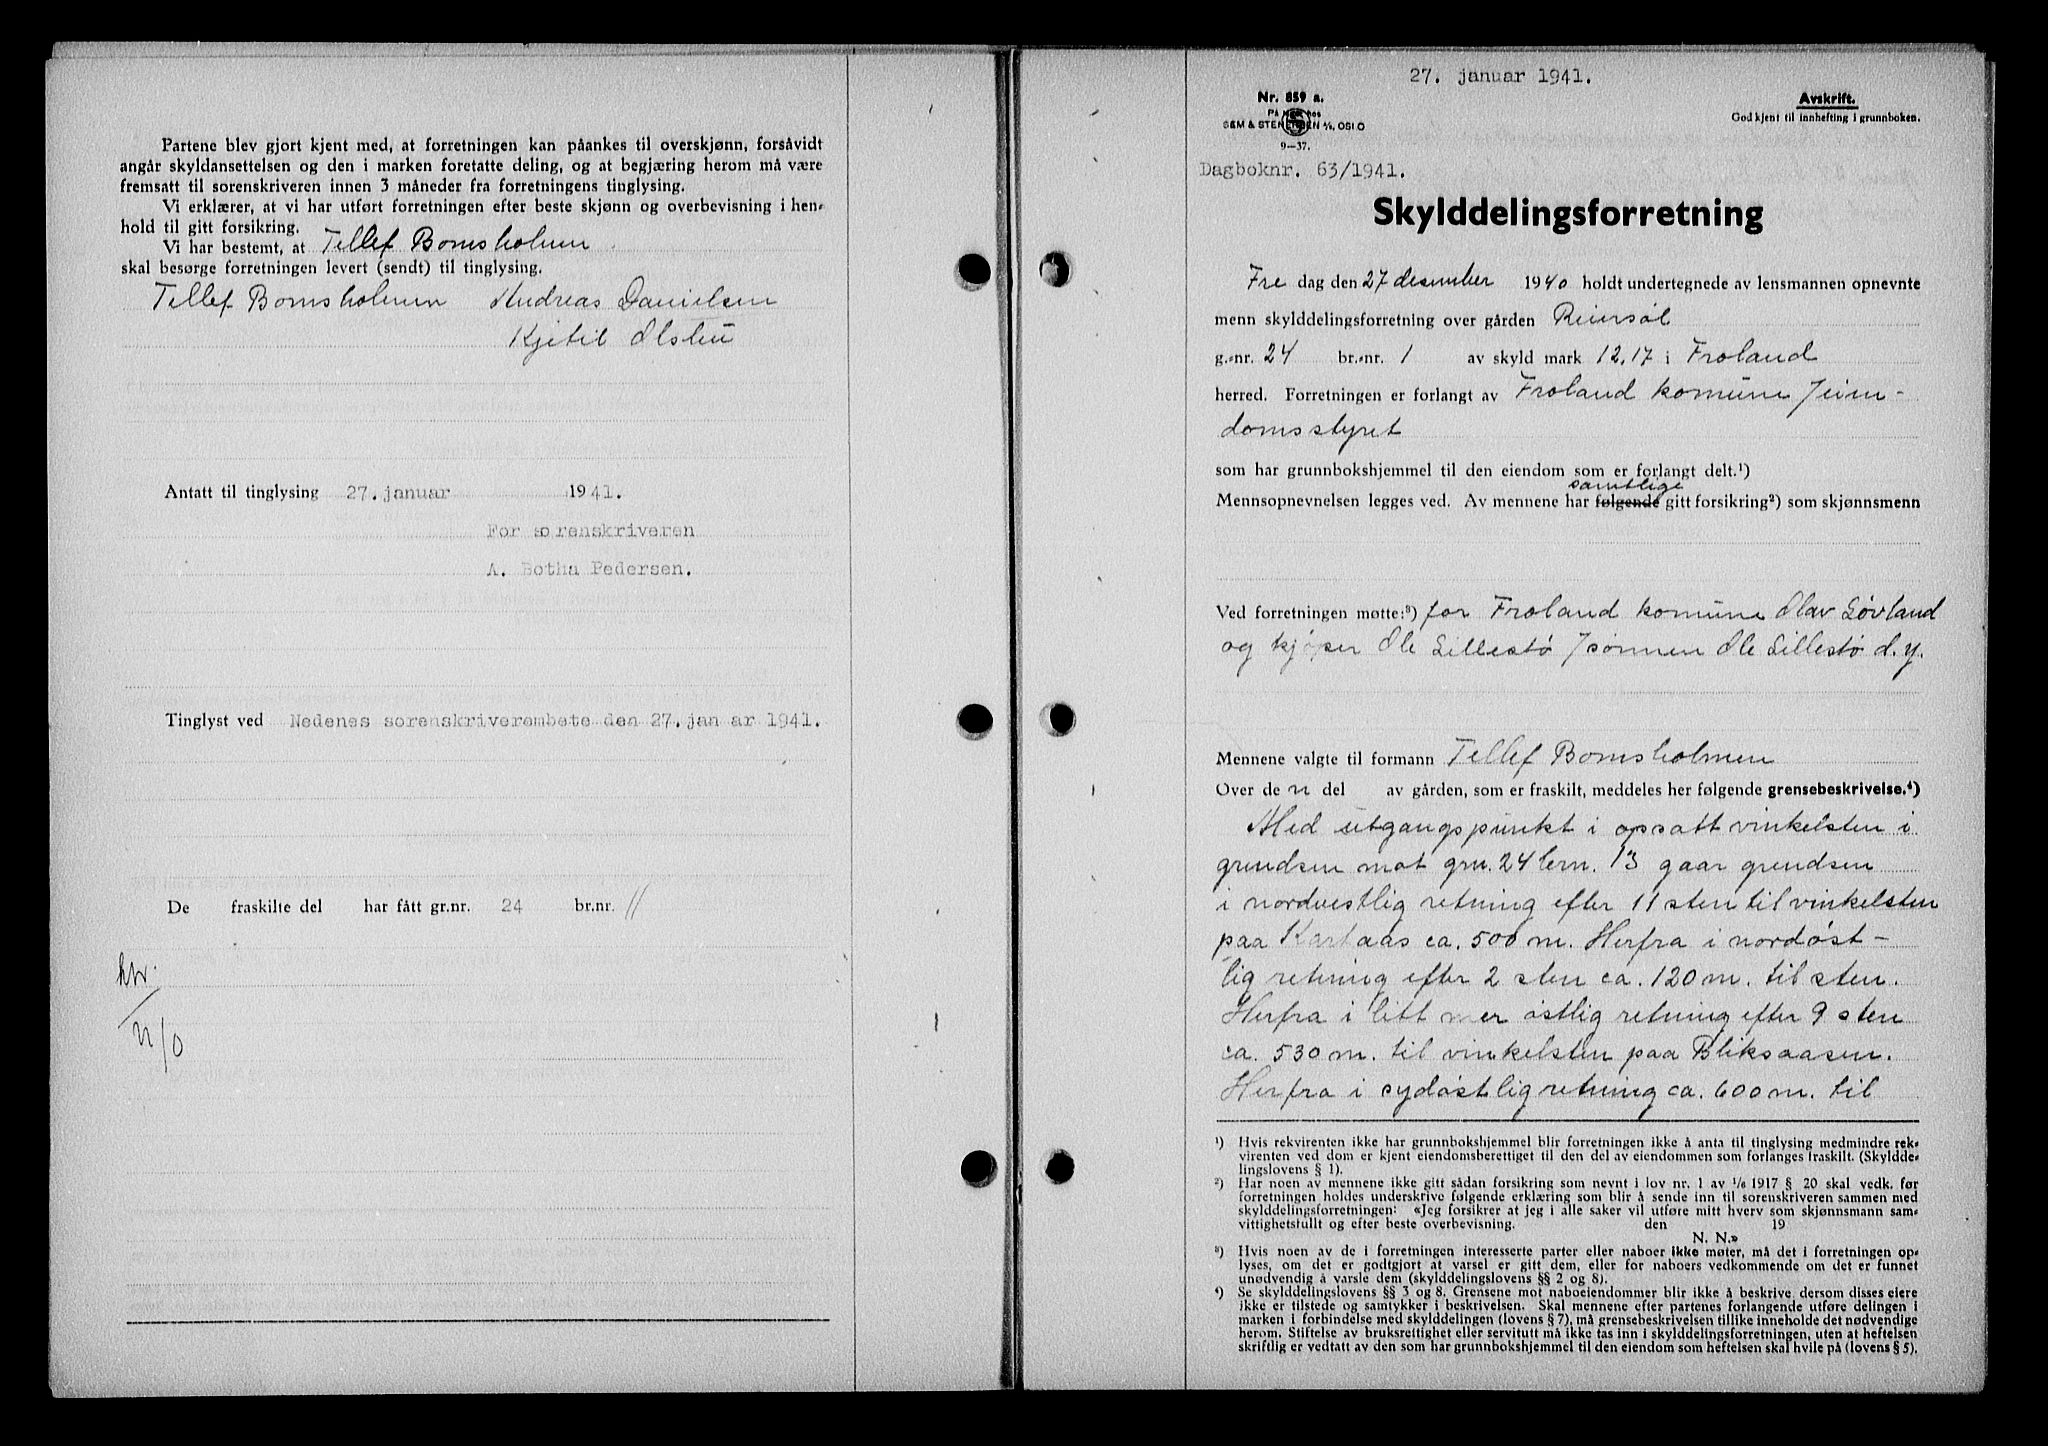 Partene blev gjort kjent med, at forretningen kan påankes til overskjønn, forsåvidt
angår skyldansettelsen og den i marken foretatte deling, og at begjæring herom må være
fremsatt til sorenskriveren innen 3 måneder fra forretningens tinglysing.
Vi erklærer, at vi har utført forretningen efter beste skjønn og overbevisning i hen-
hold til gitt forsikring.
Vi har bestemt, at Tellef Bomsholmen
skal besørge forretningen levert (sendt) til tinglysing.
Tellef Bomsholmen Andreas Danielsen
Kjetil Olsten
Antatt til tinglysing 27. januar 1941.
For sorenskriveren
A. Botha Pedersen.
Tinglyst ved Nedenes sorenskriverembete den 27. jan ar 1941.
De fraskilte del har fått gr.nr. 24 br.nr. 11
27. januar 1941.
Nr. 859 a.
På lager hos
SEM & STENERSEN A/S, OSLO
9-37.
Avskrift.
God kjent til innhefting i grunnboken.
Dagboknr. 63/1941.
Skylddelingsforretning
Fre dag den 27 desember 1940 holdt undertegnede av lensmannen opnevnte
menn skylddelingsforretning over gården Reiersøl
g.-nr. 24 br.-nr. 1 av skyld mark 12,17 i Froland
herred. Forretningen er forlangt av Froland komune /eien-
domsstyret
som har grunnbokshjemmel til den eiendom som er forlangt delt.¹)
samtlige
Mennsopnevnelsen legges ved. Av mennene har følgende gitt forsikring²) som skjønnsmenn
Ved forretningen møtte:³) for Froland komune Olav Løvland
og kjøper Ole Lillestø /sønnen Ole Lillestø d.y.
Mennene valgte til formann Tellef Bomsholmen
Over de n del av gården, som er fraskilt, meddeles her følgende grensebeskrivelse.⁴)
Med utgangspunkt i opsatt vinkelsten i
grendsen mot grn. 24 brn. 13 gaar grendsen
i nordvestlig retning efter 11 sten til vinkelsten
paa Kartaas ca. 500 m. Herfra i nordøst-
lig retning efter 2 sten ca. 120 m. til sten.
Herfra i litt mer østlig retning efter 9 sten
ca. 530 m. til vinkelsten paa Bliksaasen.
Herfra i sydøstlig retning ca. 600 m. til
¹) Hvis rekvirenten ikke har grunnbokshjemmel blir forretningen ikke å anta til tinglysing medmindre rek-
virenten ved dom er kjent eiendomsberettiget til den del av eiendommen som forlanges fraskilt. (Skyldde-
lingslovens § 1).
²) Har noen av mennene ikke gitt sådan forsikring som nevnt i lov nr. 1 av ¹/₆ 1917 § 20 skal vedk. før
forretningen holdes underskrive følgende erklæring som blir å sende inn til sorenskriveren sammen med
skylddelingsforretningen: «Jeg forsikrer at jeg i alle saker vil utføre mitt hverv som skjønnsmann sam-
vittighetsfullt og efter beste overbevisning. den 19
N. N.»
³) Hvis noen av de i forretningen interesserte parter eller naboer ikke møter, må det i forretningen op-
lyses, om det er godtgjort at varsel er gitt dem, eller for naboers vedkommende om det er funnet
unødvendig å varsle dem (skylddelingslovens §§ 2 og 8).
⁴) Se skylddelingslovens §§ 3 og 8. Grensene mot naboeiendommer blir ikke å beskrive, dersom disses eiere
ikke er tilstede og samtykker i beskrivelsen. Skal mennene efter partenes forlangende utføre delingen i
marken i forbindelse med skylddelingen (lovens § 7), må grensebeskrivelsen tillike inneholde det nødvendige
herom. Stiftelse av bruksrettighet eller servitutt må ikke tas inn i skylddelingsforretningen, uten at heftelsen
skriftlig er vedtatt av den som har grunnbokshjemmel til den eiendom som heftelsen skal hvile på (lovens § 5).